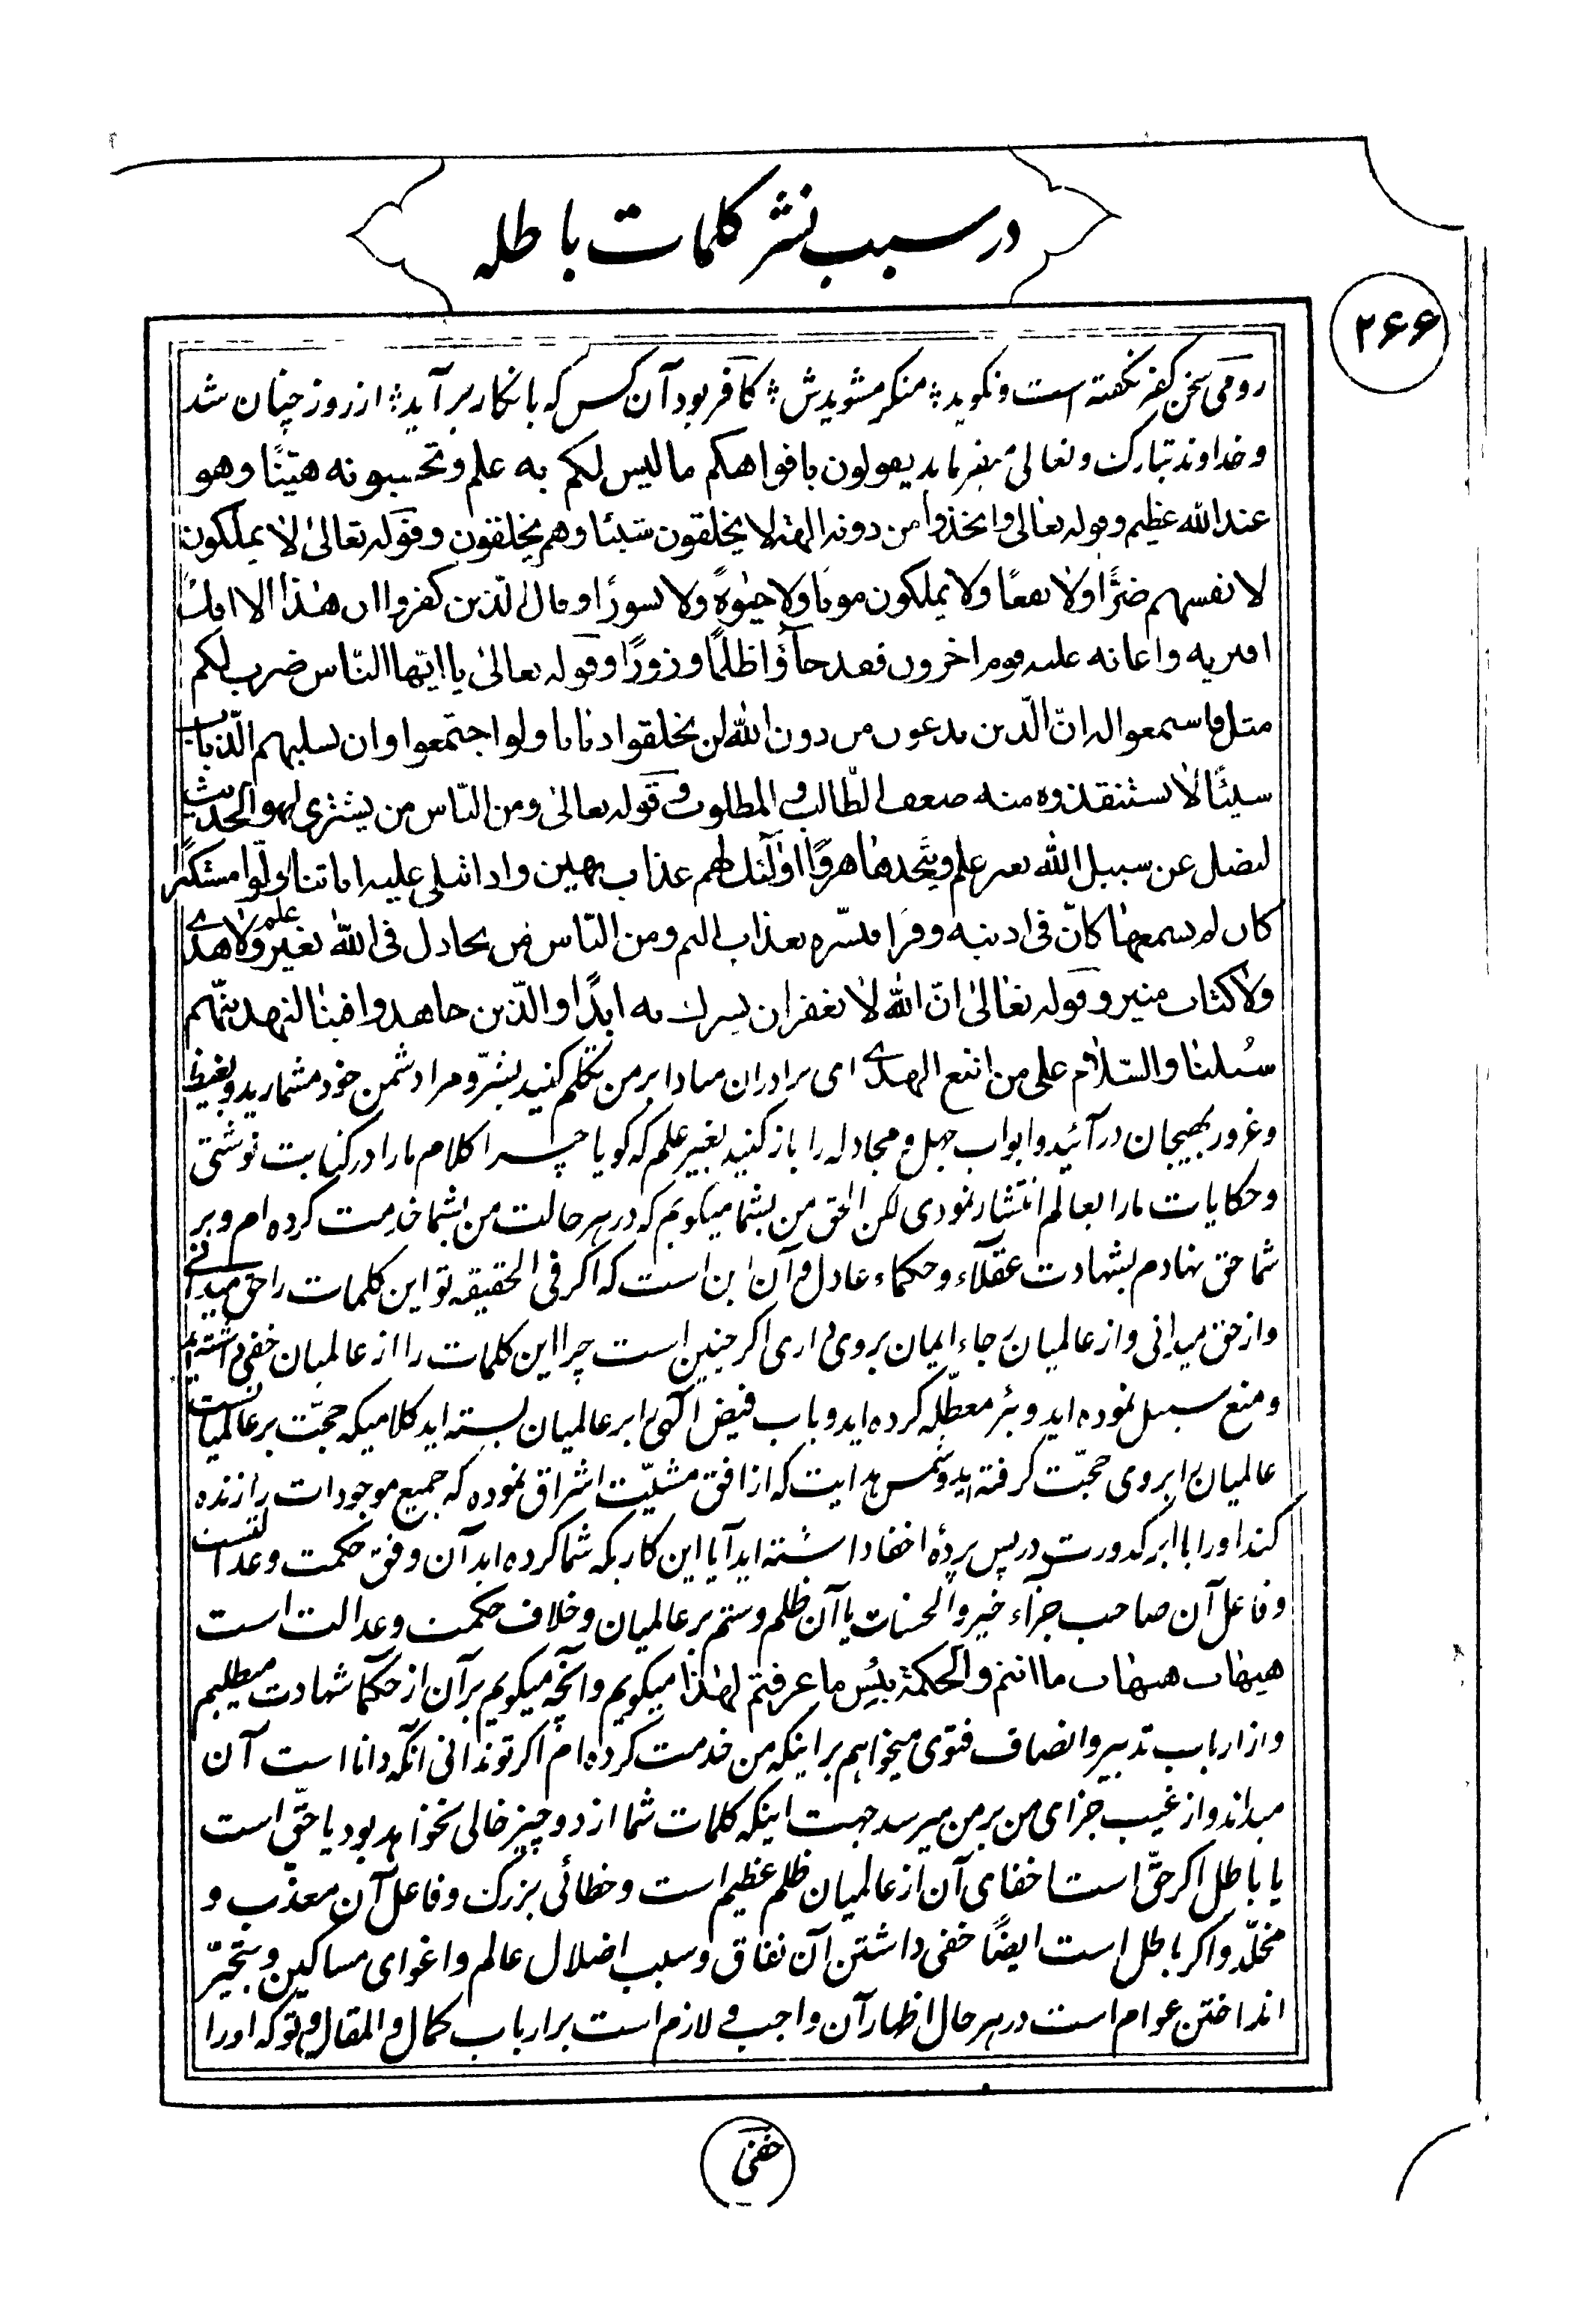 در سبب نشر کلمات باطله
۲۶۶
رومی سخن کفر نگفته است و نگوید ؛ منکر مشویدش ؛ کافر بود آن کس که بانکار برآید ؛ از روز چنان شد
و خداوند تبارک و تعالی میفرماید یقولون بافواهکم ما لیس لکم به علم و تحسبونه هیّنًا و هو
عند الله عظیم و قوله تعالی و اتخذوا من دونه الهة لا یخلقون شیئا و هم یخلقون و قوله تعالیٰ لا یملکون
لانفسهم ضرًّا و لا نفعًا و لا یملکون موتا و لا حیٰوةً و لا نشورًا و قال الّذین کفروا ان هٰذا الا افک
افتریه و اعانه علیه قوم اخرون فقد جآؤا ظلمًا و زورًا و قوله تعالیٰ یا ایّها النّاس ضرب لکم
مثل فاستمعوا له انّ الّذین تدعون من دون الله لن یخلقوا ذبابا و لو اجتمعوا و ان یسلبهم الذّباب
شیئًا لا یستنقذوه منه ضعف الطّالب و المطلوب و قوله تعالیٰ و من النّاس من یشتری لهو الحدیث
لیضل عن سبیل الله بغیر علم و یتّخذها هزوًا اولٰئک لهم عذاب مهین و اذا تتلی علیه ایاتنا ولّوا مستکبرًا
کان لم یسمعها کانّ فی اذنیه وقرا فبشّره بعذاب الیم و من النّاس من یجادل فی الله بغیر علم و لا هدی
و لا کتاب منیر و قوله تعالیٰ انّ الله لا یغفر ان یشرک به ابدًا و الّذین جاهدوا فینا لنهدینّهم
سُبلنا و السّلام علی من اتبع الهدی ای برادران مبادا بر من تکلم کنید بشرّ و مرا دشمن خود مشمارید و بغیظ
و غرور بهیجان درآئید و ابواب جهل و مجادله را باز کنید بغیر علم که گویا چرا کلام ما را در کتابت نوشتی
و حکایات ما را بعالم انتشار نمودی لکن الحق من بشما میگویم که در هر حالت من بشما خدمت کرده ام و بر
شما حق نهادم بشهادت عقلآء و حکماء عادل و آن این است که اگر فی الحقیقه تو این کلمات را حق میدانی
و از حق میدانی و از عالمیان رجاء ایمان بروی داری اگر چنین است چرا این کلمات را از عالمیان خفی داشته اید
و منع سبیل نموده اید و بئر معطّله کرده اید و باب فیض الٓهی را بر عالمیان بسته اید کلامیکه حجّت بر عالمیانست
عالمیان را بروی حجّت گرفته اید و شمس هدایت که از افق مشیّت اشراق نموده که جمیع موجودات را زنده
کند او را با ابر کدورت در پس پردهٔ اخفا داشته اید آیا این کاریکه شما کرده اید آن وفق حکمت و عدالتست
و فاعل آن صاحب جزآء خیر و الحسنات یا آن ظلم و ستم بر عالمیان و خلاف حکمت و عدالت است
هیهات هیهات ما انتم و الحکمة بئس ما عرفتم لهٰذا میگویم و آنچه میگویم بر آن از حکما شهادت میطلبم
و از ارباب تدبیر و انصاف فتوی میخواهم بر اینکه من خدمت کرده ام اگر تو ندانی آنکه دانا است آن
میداند و از غیب جزای من بر من میرسد جهت اینکه کلمات شما از دو چیز خالی نخواهد بود یا حقّ است
یا باطل اگر حقّ است اخفای آن از عالمیان ظلم عظیم است و خطائی بزرگ و فاعل آن معذّب و
مخلّد و اگر باطل است ایضًا خفی داشتن آن نفاق و سبب اضلال عالم و اغوای مساکین و بتحیّر
انداختن عوام است در هر حال اظهار آن واجب و لازم است بر ارباب کمال و المقال و تو که او را
خفی